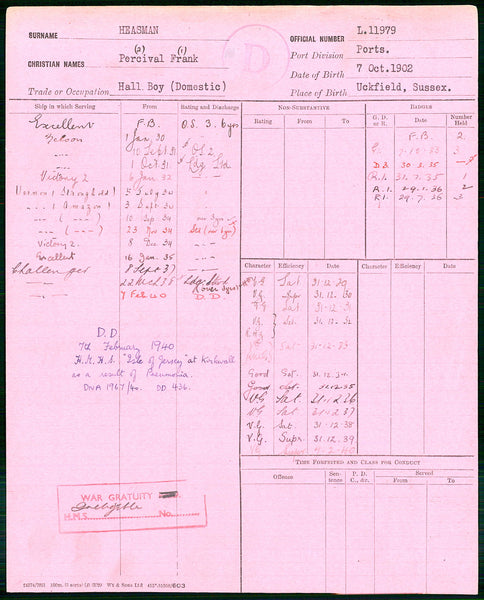 SURNAME HEASMAN OFFICIAL NUMBER L.11979
(2) (1)
CHRISTIAN NAMES Percival Frank Port Division Ports.
D
Date of Birth 7 Oct.1902
Trade or Occupation Hall Boy (Domestic) Place of Birth Uckfield, Sussex.
Ship in which Serving From Rating and Discharge
Excellent P.B. O.S. 3. 6yrs
Nelson 1 Jan 30
10 Sept 31 O.S. 2
1 Oct 31 Ldg Std
Victory 2 6 Jan 32
Vernon (Stronghold) 5 July 34
" (Amazon) 3 Sept 34
10 Sep 34
23 Nov 34
Victory 2. 8 Dec 34
Excellent 16 Jan 35
Challenger 8 Sept 37
7 Feb 40 D.D.
D.D.
7th February 1940
H.M.H.S. "Isle of Jersey" at Kirkwall
as a result of Pneumonia.
DNA 1967/40. DD 436.
WAR GRATUITY
Ineligible
H.M.S. No.
NON-SUBSTANTIVE
Rating From To
BADGES
G.D. or R. Date Number Held
P.B. 2
G. 7.10.33 3
D.3. 30.3.35
R.1. 31.7.35 1
R.1. 29.1.36 2
R1. 29.7.36 3
Character Efficiency Date Character Efficiency Date
VG Sat 31.12.29
V.G. Supr 31.12.30
VG Sat 31.12.31
VG Sat. 31.12.32
VG Sat 31.12.33
Good Sat. 31.12.34
Good Sat. 31.12.35
VG Sat. 31.12.36
VG Sat 31.12.37
V.G. Sat. 31.12.38
V.G. Supr. 31.12.39
VG Super 7.2.40
TIME FORFEITED AND CLASS FOR CONDUCT
Offence Sentence P.D. C., &c. Served
From To